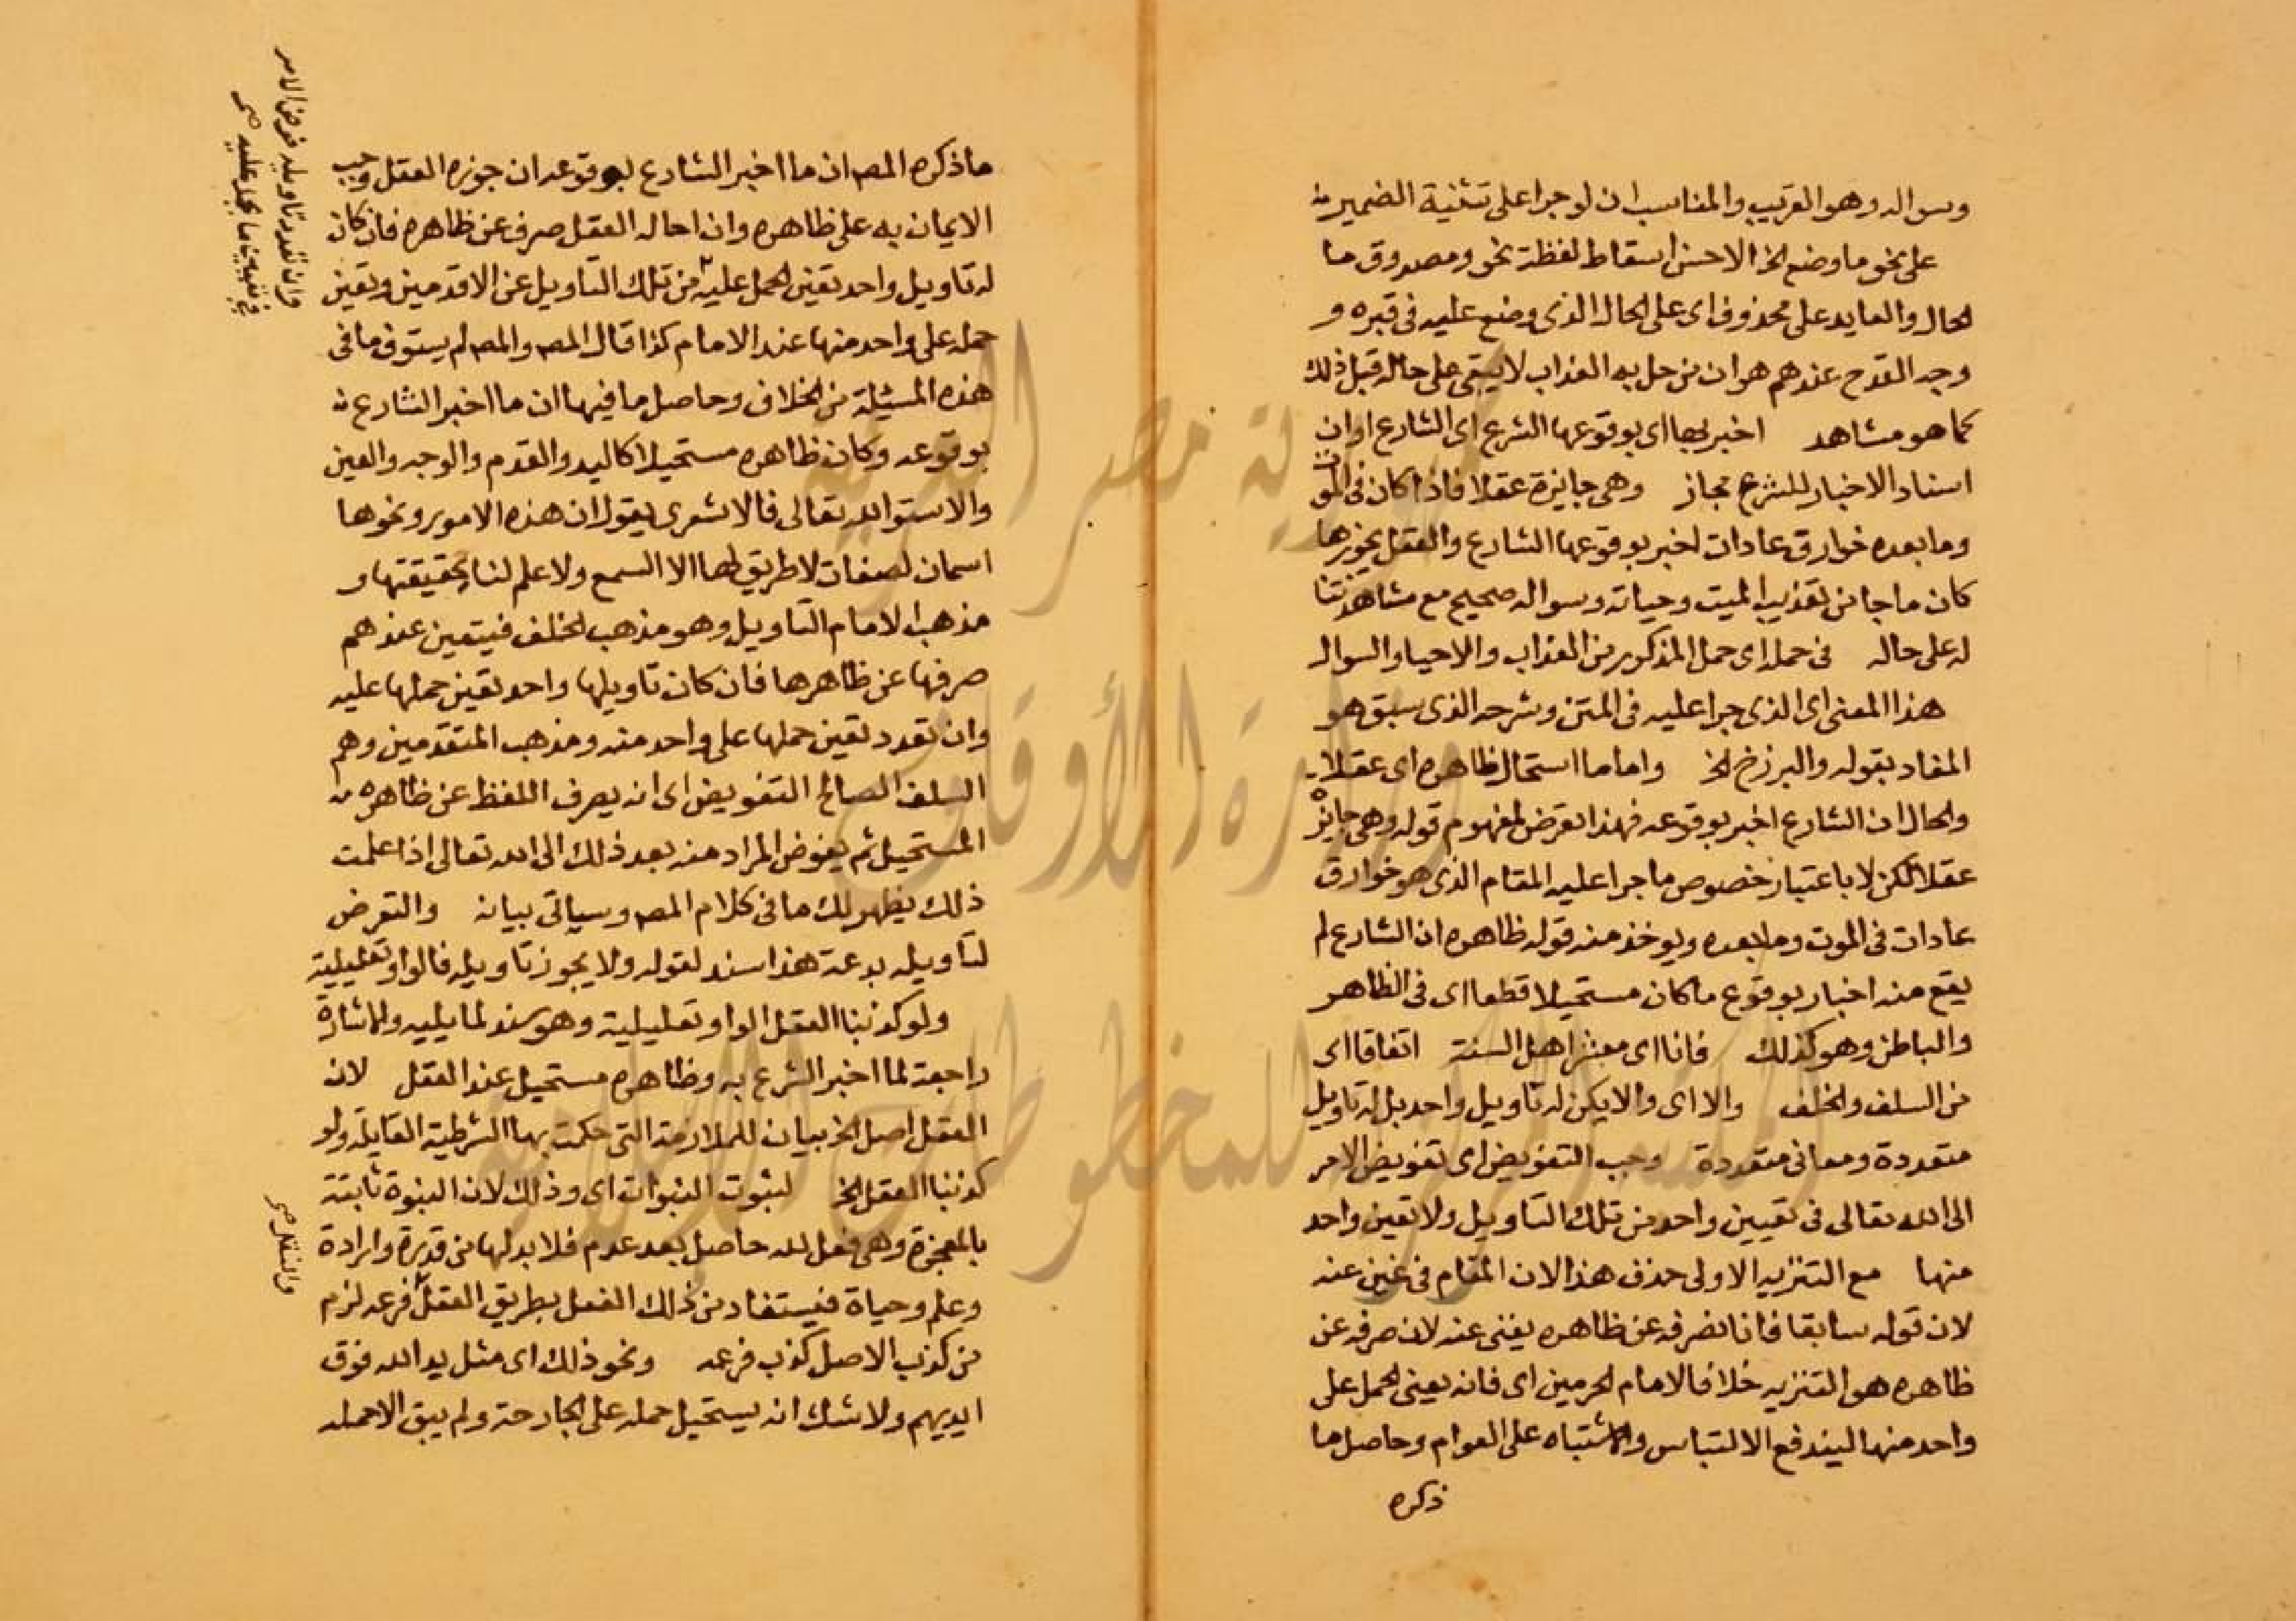 وسواله وهو القريب والمناسب ان لو جرا على تثنية الضميرين
على نحو ما وضع الخ الاحسن اسقاط لفظة نحو ومصدوق ما
الحال والعايد على محذوف اى على الحال الذى وضع عليه فى قبره و
وجه القدح عندهم هو ان من حل به العذاب لا يبقى على حاله قبل ذلك
كما هو مشاهد اخبر بها اى بوقوعها الشرع اى الشارع او ان
اسناد الاخبار للشرع مجاز وهى جايزة عقلا فاذا كان فى الموت
وما بعده خوارق عادات اخبر بوقوعها الشارع والعقل يجوزها
كان ما جا من تعذيب الميت وحياته وسواله صحيح مع مشاهدتنا
له على حاله فى حمله اى حمل المذكور من العذاب والاحيا والسوال
هذا المعنى اى الذى جرا عليه فى المتن وشرحه الذى سبق هو
المفاد بقوله والبرزخ الخ واما ما استحال ظاهره اى عقلا
والحال ان الشارع اخبر بوقوعه فهذا تعرض لمفهوم قوله وهى جايزة
عقلا لكن لا باعتبار خصوص ما جرا عليه المقام الذى هو خوارق
عادات فى الموت وما بعده ويوخذ منه قوله ظاهره ان الشارع لم
يقع منه اخبار بوقوع ما كان مستحيلا قطعا اى فى الظاهر
والباطن وهو كذلك فانا اى معشر اهل السنة اتفاقا اى
من السلف والخلف والا اى والا يكن له تاويل واحد بل له تاويل
متعددة ومعانى متعددة وجب التفويض اى تفويض الامر
الى الله تعالى فى تعيين واحد من تلك التاويل ولا تعين واحد
منها مع التنزيه الاولى حذف هذا لان المقام فى غنى عنه
لان قوله سابقا فانا نصرفه عن ظاهره يغنى عنه لان صرفه عن
ظاهره هو التنزيه خلافا لامام الحرمين اى فانه يعنى الحمل على
واحد منها ليندفع الالتباس والاشتباه على العوام وحاصل ما
ذكره
ما ذكره المصـ ان ما اخبر الشارع بوقوعه ان جوزه العقل وجب
الايمان به على ظاهره وان احاله العقل صرف عن ظاهره فان كان
له تاويل واحد تعين الحمل عليه من تلك التاويل عن الاقدمين وتعين
حمله على واحد منها عند الامام كذا قال المصـ والمصـ لم يستوف ما فى
هذه المسيلة من الخلاف وحاصل ما فيها ان ما اخبر الشارع
بوقوعه وكان ظاهره مستحيلا كاليد والقدم والوجه والعين
والاستوا لله تعالى فالاشعرى يقول ان هذه الامور ونحوها
اسمان لصفات لا طريق لها الا السمع ولا علم لنا بحقيقتها و
مذهب الامام التاويل وهو مذهب الخلف فيتعين عندهم
صرفها عن ظاهرها فان كان تاويلها واحد تعين حملها عليه
وان تعدد تعين حملها على واحد منه ومذهب المتقدمين وهم
السلف الصالح التفويض اى انه يصرف اللفظ عن ظاهره
المستحيل ثم يفوض المراد منه بعد ذلك الى الله تعالى اذا علمت
ذلك يظهر لك ما فى كلام المصـ وسياتى بيانه والتعرض
لتاويله بدعة هذا سند لقوله ولا يجوز تاويله فالواو تعليلية
ولو كذبنا العقل الواو تعليلية وهو سند لما يليه والاشارة
راجعة لما اخبر الشرع به وظاهره مستحيل عند العقل لان
العقل اصل الخ بيان للملازمة التى حكمت بها الشرطية القايلة ولو
كذبنا العقل الخ لثبوت النبوات اى وذلك لان النبوة ثابتة
بالمعجزة وهى فعل لله حاصل بعد عدم فلا بد لها من قدرة وارادة
وعلم وحياة فيستفاد من ذلك الفعل بطريق العقل فرعه لزم
من كذب الاصل كذب فرعه ونحو ذلك اى مثل يد الله فوق
ايديهم ولا شك انه يستحيل حمله على الجارحة ولم يبق الا حمله
وان تعدد تاويله فوض الامر
فى تعيين ما يحمل عليه صح
والنقل صح
جمهورية مصر العربية
وزارة الأوقاف
المكتبة المركزية للمخطوطات الإسلامية